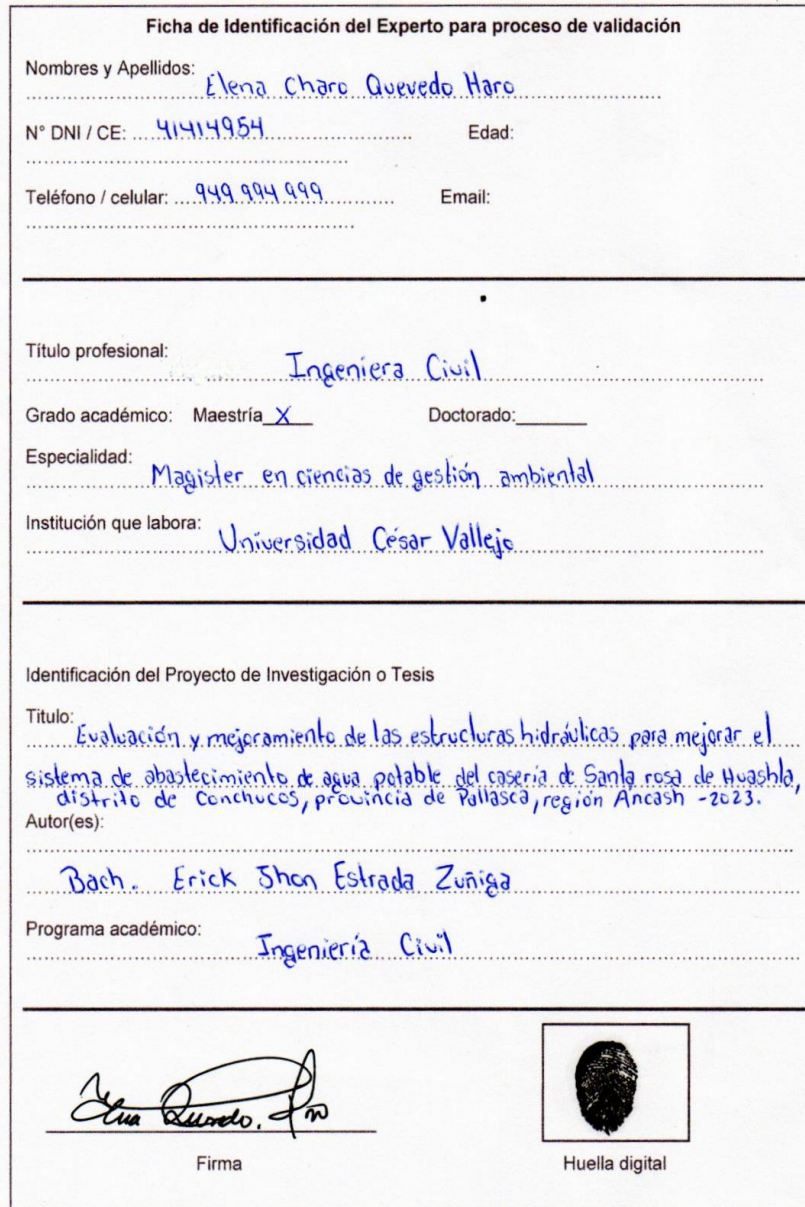 Ficha de Identificación del Experto para proceso de validación
Nombres y Apellidos:
Elena Charo Quevedo Haro
N° DNI / CE: 41414954 Edad:
Teléfono / celular: 949 994 999 Email:
Título profesional:
Ingeniera Civil
Grado académico: Maestría X Doctorado:
Especialidad:
Magister en ciencias de gestión ambiental
Institución que labora:
Universidad César Vallejo
Identificación del Proyecto de Investigación o Tesis
Titulo:
Evaluación y mejoramiento de las estructuras hidráulicas para mejorar el
sistema de abastecimiento de agua potable del casería de Santa rosa de Huashla,
distrito de Conchucos, provincia de Pallasca, región Ancash - 2023.
Autor(es):
Bach. Erick Jhon Estrada Zuñiga
Programa académico:
Ingeniería Civil
Firma Huella digital